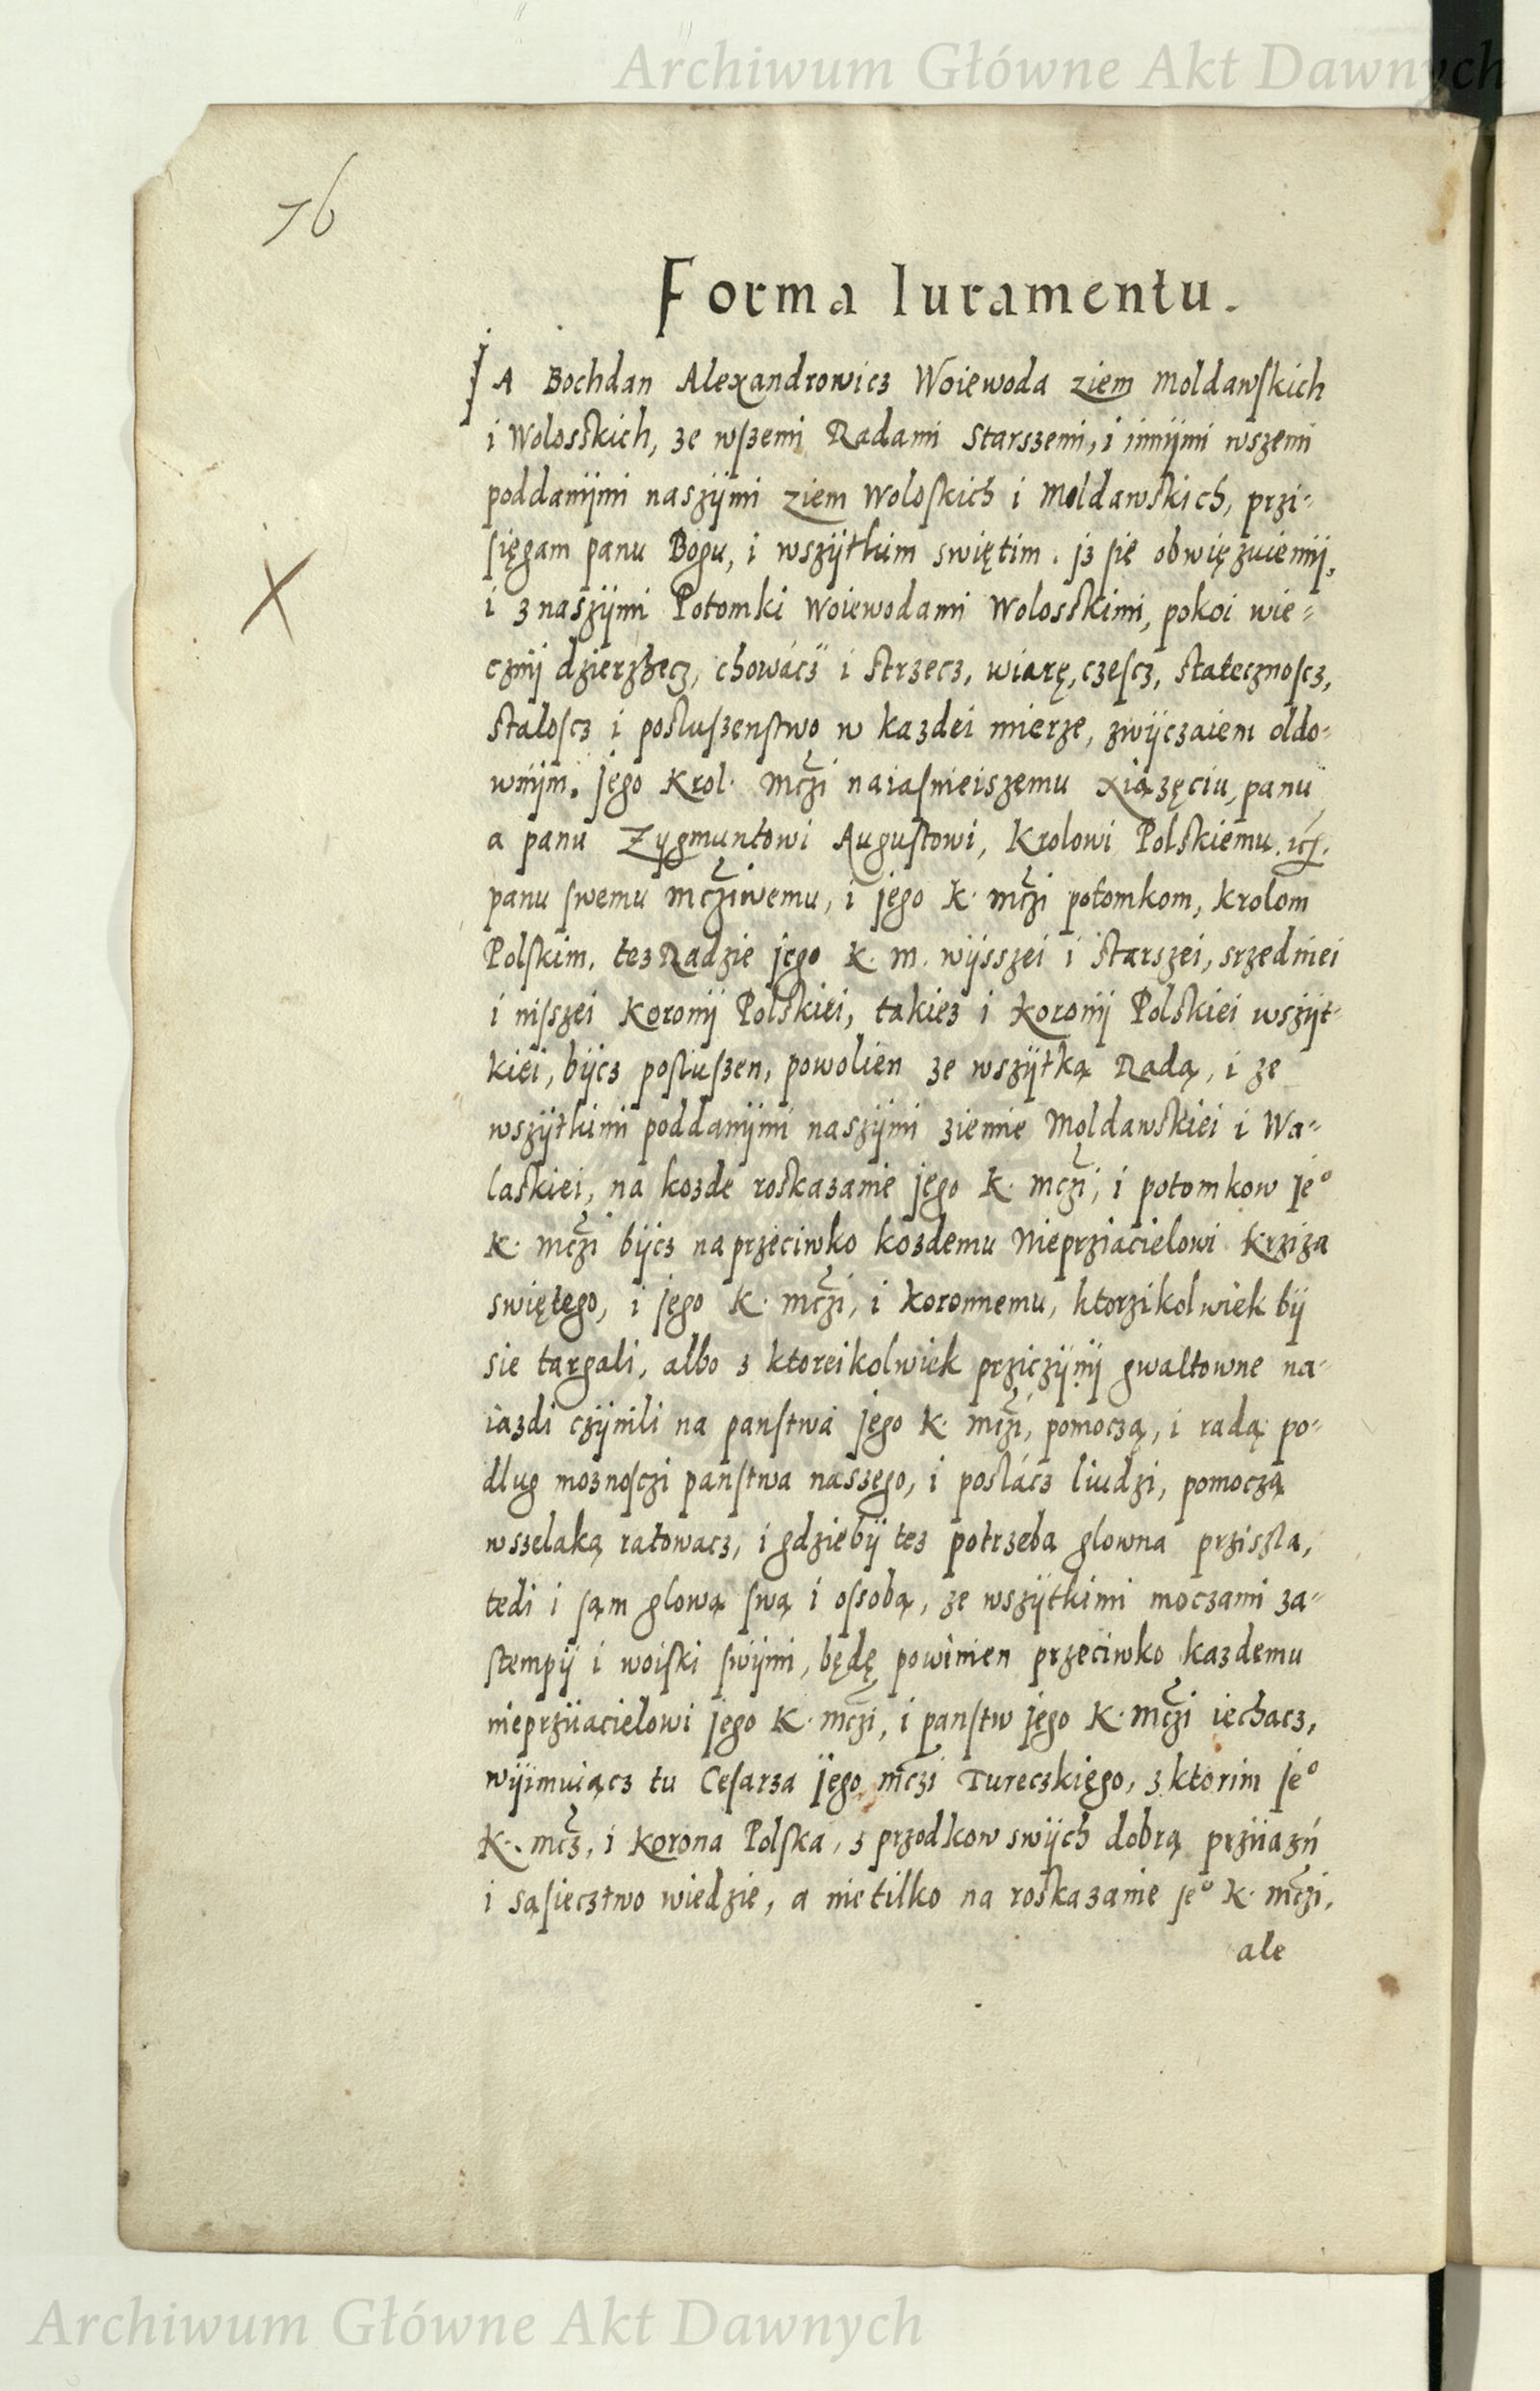 Archiwum Główne Akt Dawnych
76
Forma Iuramentu.
JA Bochdan Alexandrowicz Woiewoda ziem Moldawskich
i Wolosskich, ze wszemi Radami Starszemi, i innijmi wszemi
poddanijmi naszijmi ziem Woloskich i Moldawskich, przi-
sięgam panu Bogu, i wszijtkim swiętim. jz się obwięzuiemij,
i z naszijmi Potomki Woiewodami Wolosskimi, pokoi wie-
cznij dzierzżecz, chowácz i strzecz, wiarę, czescz, statecznoscz,
staloscz i posluszenstwo w kazdei mierze, zwijczaiem oldo-
wnijm. jego Krol. mczi naiasnieiszemu xiązęciu, panu
a panu Zygmuntowi Augustowi, Krolowi Polskiemu. icz.
panu swemu mcziwemu, i jego K. mczi potomkom, krolom
Polskim, tez Radzie jego K. m. wijsszei i starszei, srzedniei
i niszei Koronij Polskiei, takiez i Koronij Polskiei wszijt-
kiei, bijcz posluszen, powolien ze wszijtką Radą, i ze
wszijtkimi poddanijmi naszijmi ziemie Moldawskiei i Wa-
laskiei, na kozde roskazanie jego K. mczi, i potomkow je°
K. mczi bijcz naprzeciwko kozdemu Nieprziacielowi Krziza
swiętego, i jego K. mczi, i koronnemu, ktorzikolwiek bij
sie targali, albo z ktoreikolwiek prziczijnij gwaltowne na-
iazdi czijnili na panstwa jego K. mczi, pomoczą, i radą po-
dlug moznosczi panstwa naszego, i poslácz liudzi, pomoczą
wszelaką ratowacz, i gdziebij tez potrzeba glowna prziszla,
tedi i sąm glową swą i ossobą, ze wszijtkimi moczami za-
stempij i woiski swijmi, będę powinien przeciwko kazdemu
nieprziiacielowi jego K. mczi, i panstw jego K. mczi iechacz,
wijimuiącz tu Cesarza jego mczi Tureczkięgo, z ktorim je°
K. mcz, i Korona Polska, z przodkow swijch dobrą prziiazń
i sąsiecztwo wiedzie, a nie tilko na roskazanie je° K. mczi,
ale
Archiwum Główne Akt Dawnych